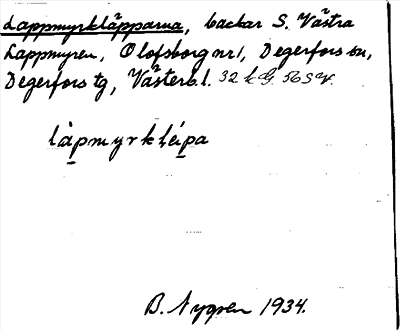 Lappmyrkläpparna, backar S. Västra
Lappmyren, Olofsborg nr 1, Degerfors sn,
Degerfors tg, Västerb. l. 32 h G. 56 S V.
låpmyrkleipa
B. Nygren 1934.